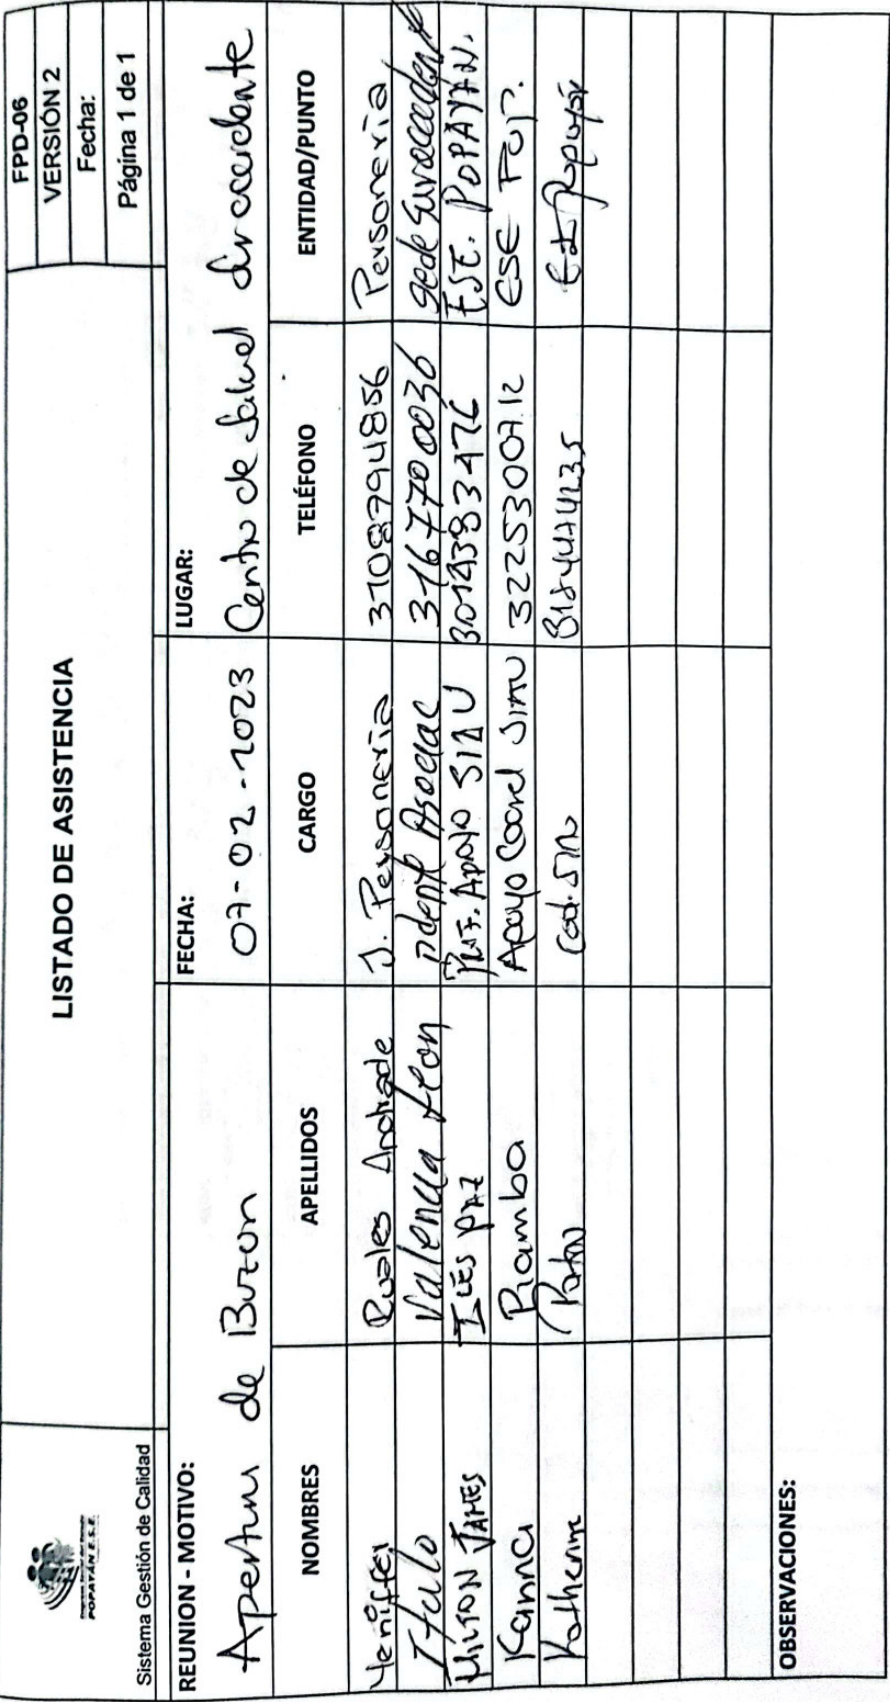 POPAYÁN E.S.E.
Sistema Gestión de Calidad
LISTADO DE ASISTENCIA
FPD-06
VERSIÓN 2
Fecha:
Página 1 de 1
REUNION - MOTIVO:
Apertura de Buzon
FECHA:
07-02-2023
LUGAR:
Centro de Salud Suroccidente
NOMBRES APELLIDOS CARGO TELÉFONO ENTIDAD/PUNTO
Yeniffer Ruales Andrade J. Personeria 3108794856 Personeria
Italo Valencia León Asociac 3167770036 sede Suroccidente
MILTON JAMES ILES PAZ Prof. APOYO SIAU 3014383476 ESE. POPAYAN.
Karina Piamba Apoyo Coord SIAU 3225300712 ESE Pop.
Katherine Cod. SIAU 3184474235 Popayán
OBSERVACIONES: